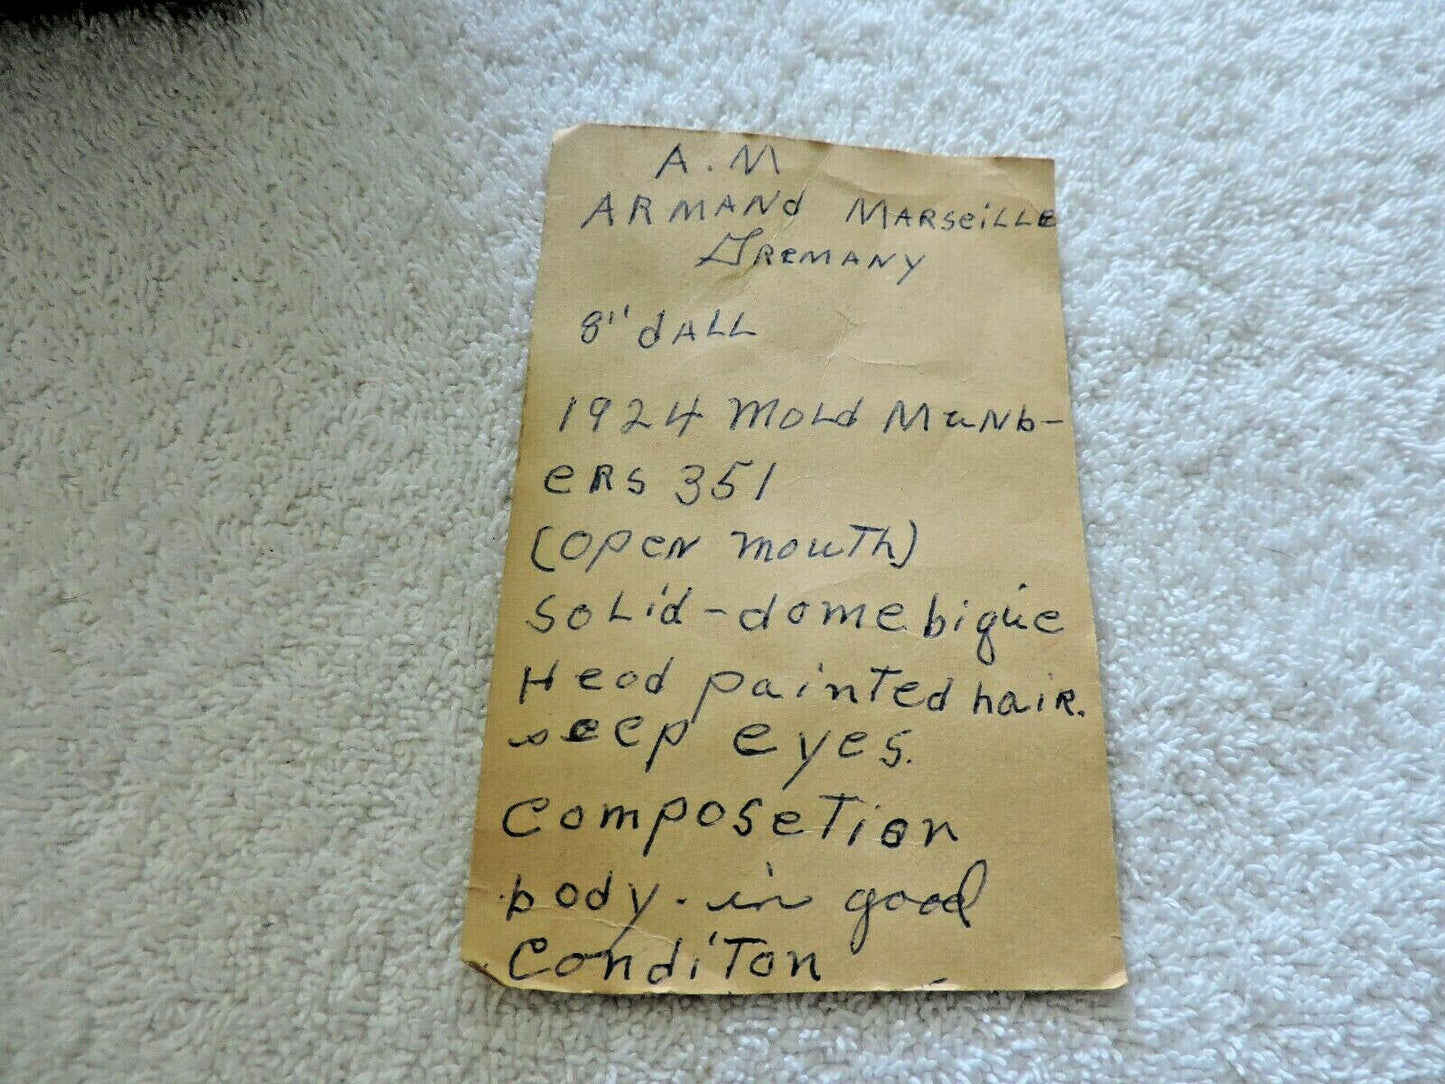 A. M
ARMANd MARSeiLLE
GReMANY
8" dALL
1924 MoLd MuNb-
eRs 351
(open mouth)
SoLid-dome bigue
Head painted hair.
seep eyes.
Composetion
body. in good
Conditon